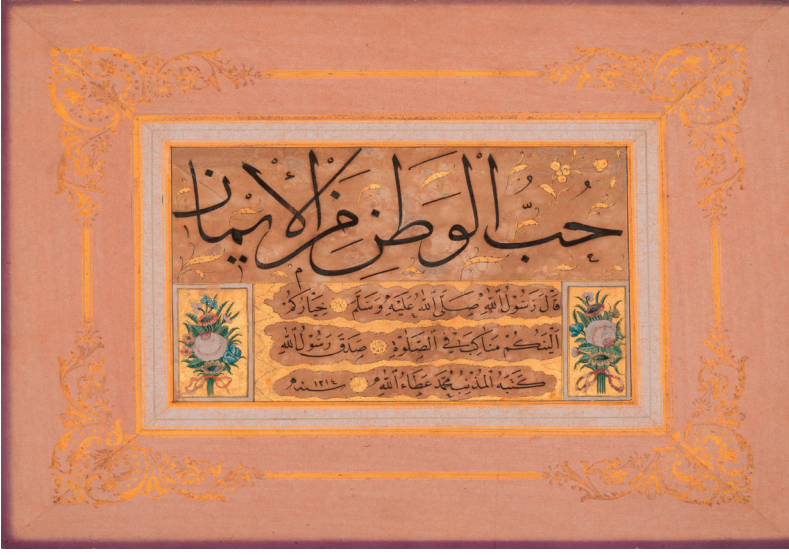 حُبُّ الوَطَنِ مِنَ الْإِيمَان
قَالَ رَسُولُ اللّٰهِ صَلَّى اللّٰهُ عَلَيْهِ وَسَلَّمَ خِيَارُكُمْ
أَلْيَنُكُمْ مَنَاكِبَ فِي الصَّلٰوةِ صَدَقَ رَسُولُ اللّٰهِ
كَتَبَهُ الْمُذْنِبُ مُحَمَّد عَطَاءُ اللّٰهِ سنه ١٣١٤